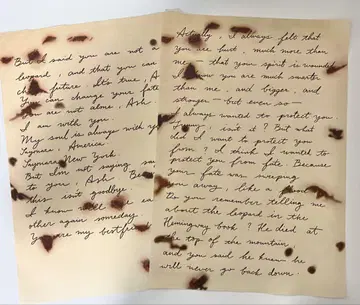 But I said you are not a
leopard, and that you can
change future. It's true, A
You can change your fate
You are not alone, Ash.
I am with you.
My soul is always with y
, America.
New York.
But I'm not saying
to you, Ash. Beca
this isn't goodbye
I know we'll see ea
other again someday
You are my bestfrie
Actually, I always felt that
you are hurt, much more than
me — that your spirit is wounded
I know you are much smarter
than me, and bigger, and
stronger — but even so —
I always wanted to protect you.
isn't it? But what
did I want to protect you
from? I think I wanted to
protect you from fate. Because
your fate was sweeping
you away, like a flood
Do you remember telling me
about the leopard in the
Hemingway book? He died at
the top of the mountain,
and you said he knew he
will never go back down.